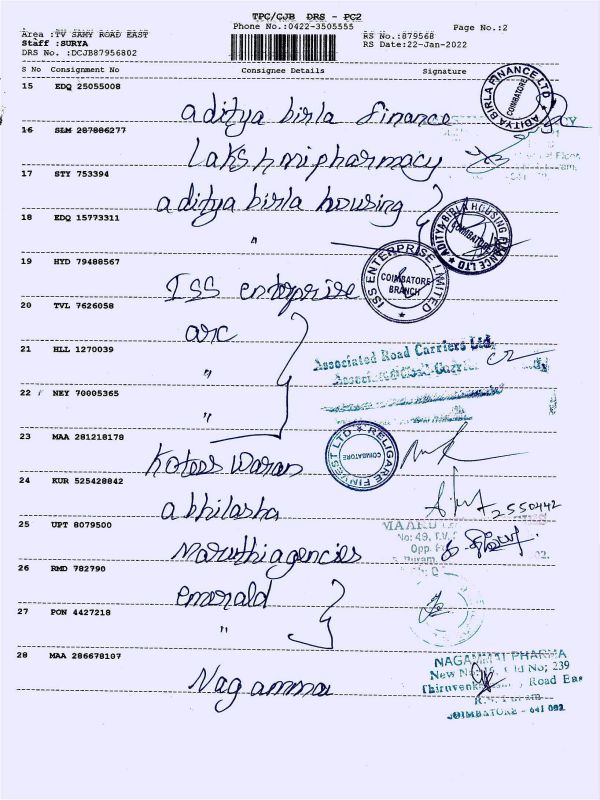 TPC/CJB DRS - PC2
Phone No.:0422-3505555
Page No.:2
Area :TV SAMY ROAD EAST
Staff :SURYA
DRS No. :DCJB87956802
RS No.:879568
RS Date:22-Jan-2022
S No Consignment No Consignee Details Signature
15 EDQ 25055008
aditya birla finance
ADITYA BIRLA FINANCE LTD
COIMBATORE
16 SLM 287886277
Lakshmipharmacy
17 STY 753394
aditya birla housing
18 EDQ 15773311
"
ADITYA BIRLA HOUSING FINANCE LTD
COIMBATORE
19 HYD 79488567
ISS enterprise
ISS ENTERPRISE LIMITED
COIMBATORE
BRANCH
20 TVL 7626058
arc
21 HLL 1270039
"
Associated Road Carriers Ltd.
22 NEY 70005365
"
23 MAA 281218178
Koteeswaran
RELIGARE FINVEST LTD
COIMBATORE
24 KUR 525428842
abhilasha
2550442
25 UPT 8079500
Maruthi agencies
No: 49, T.V.
Opp.
26 RMD 782790
emerald
27 PON 4427218
"
28 MAA 286678107
Nagammai
NAGAMMAI PHARMA
New No: Old No; 239
Road Eas
COIMBATORE - 641 002